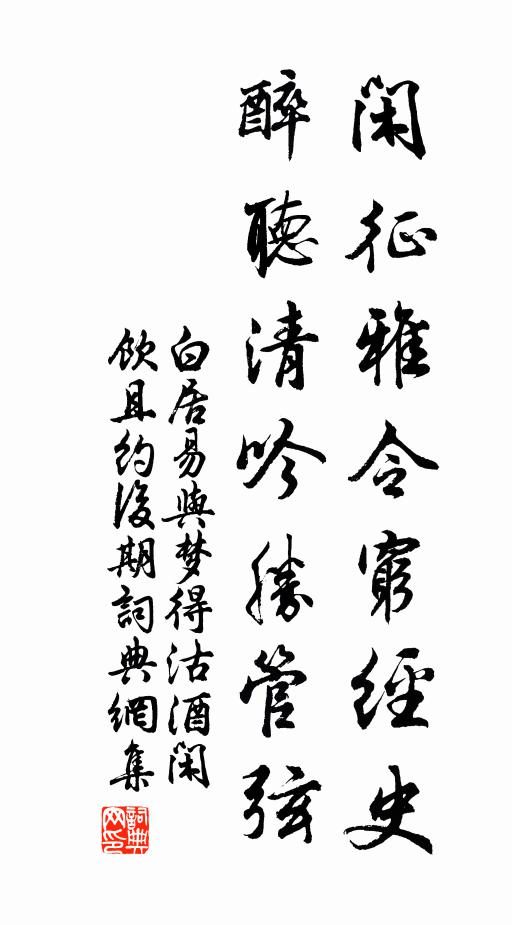 闲征雅令窮經史
醉聽清吟勝管弦
白居易與梦得沽酒闲
飲且約後期詞典網集
詞典网印